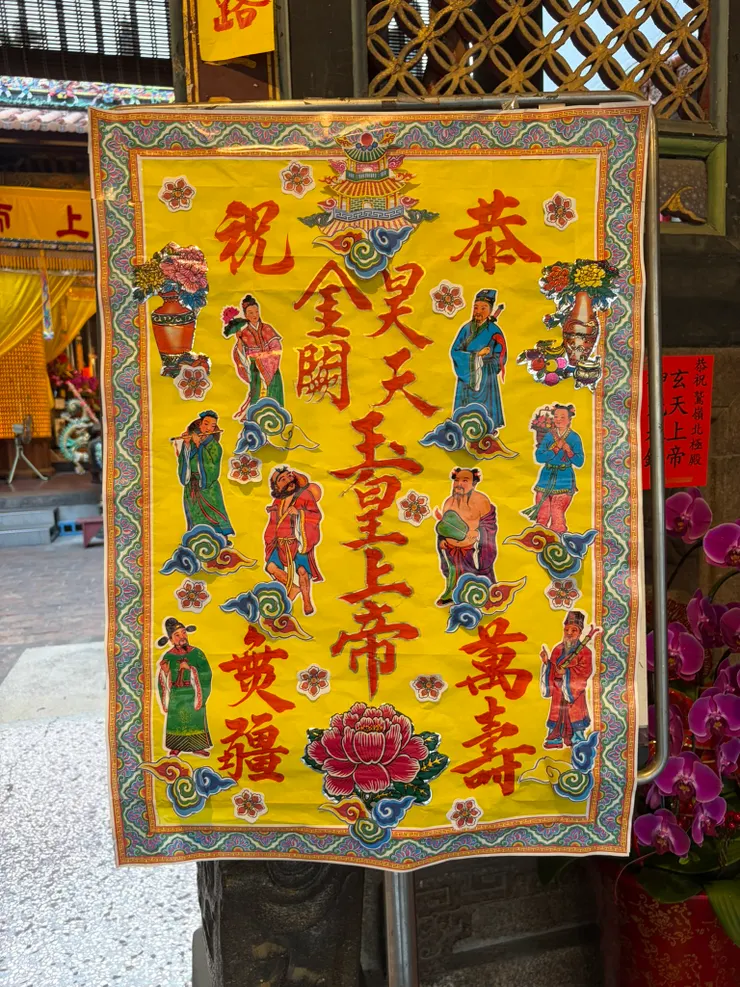 路
恭祝
昊天
金闕
玉皇上帝
萬壽
無疆
恭祝鷲嶺北極殿
玄天上帝
上